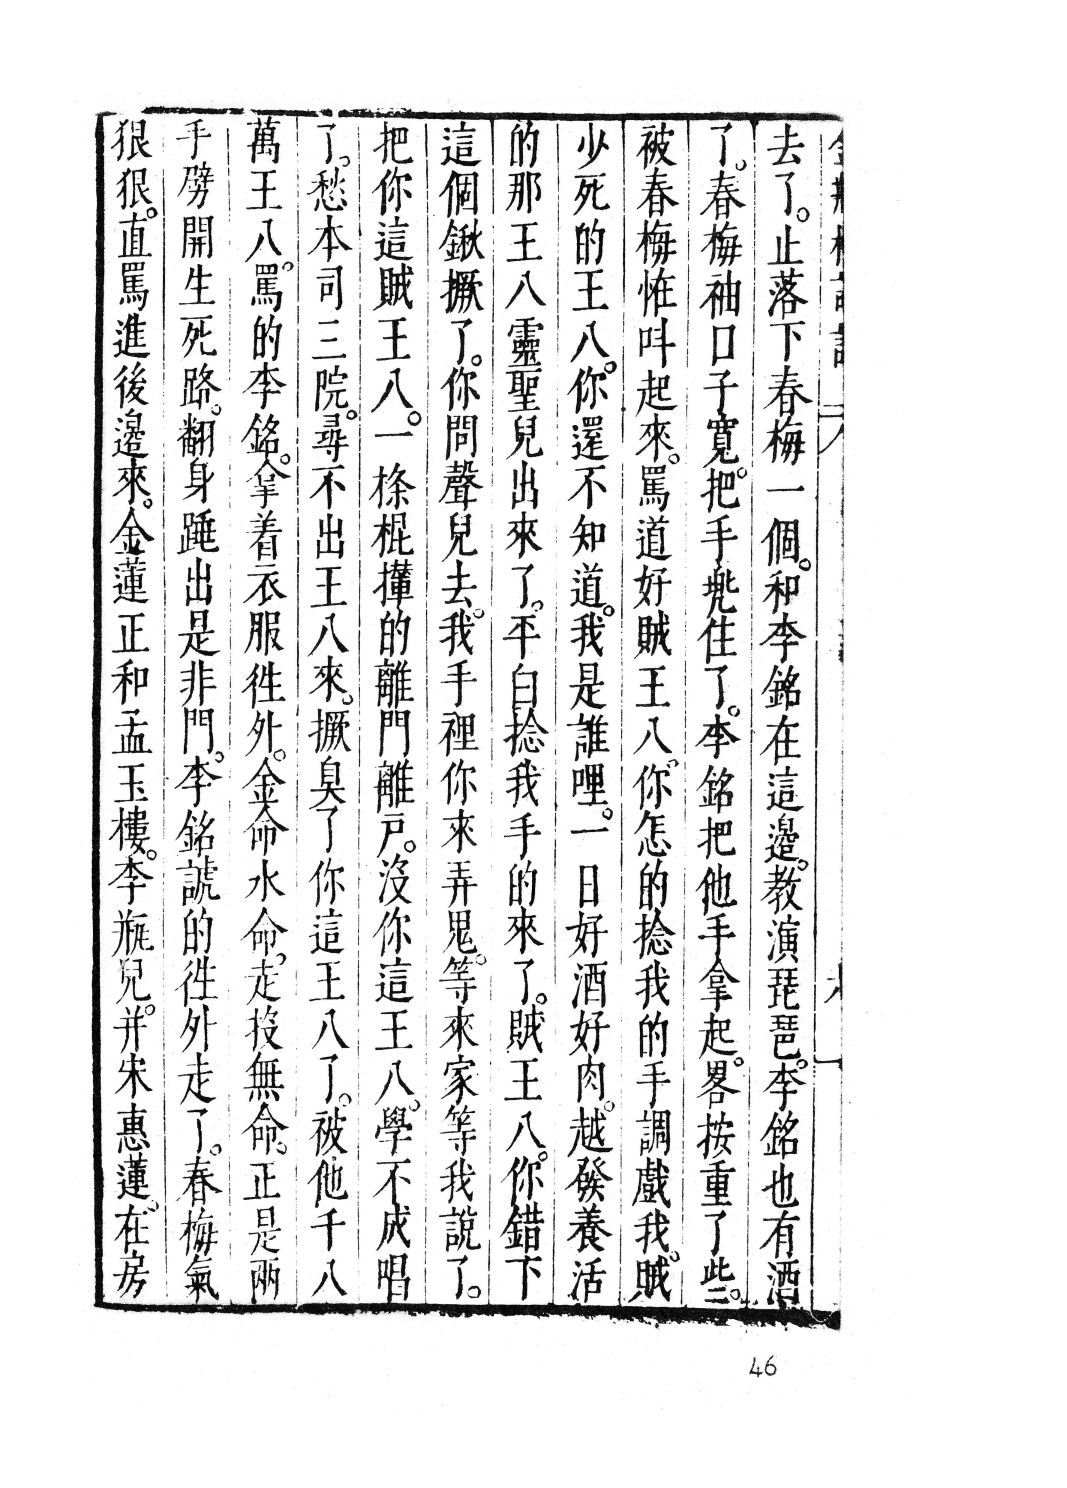 去了。止落下春梅一個。和李銘在這邊。教演琵琶。李銘也有酒
了。春梅袖口子寬。把手兠住了。李銘把他手拿起。畧按重了些。
被春梅恠呌起來。罵道好賊王八。你怎的捻我的手調戲我。賊
少死的王八。你還不知道。我是誰哩。一日好酒好肉。越發養活
的那王八靈聖兒出來了。平白捻我手的來了。賊王八。你錯下
這個鍬撅了。你問聲兒去。我手裡你來弄鬼。等來家等我說了。
把你這賊王八。一條棍攆的離門離戶。沒你這王八。學不成唱
了。愁本司三院。尋不出王八來。撅臭了你這王八了。被他千八
萬王八。罵的李銘。拿着衣服徃外。金命水命。走投無命。正是兩
手劈開生死路。翻身跳出是非門。李銘諕的徃外走了。春梅氣
狠狠。直罵進後邊來。金蓮正和孟玉樓。李瓶兒。并宋惠蓮。在房
46